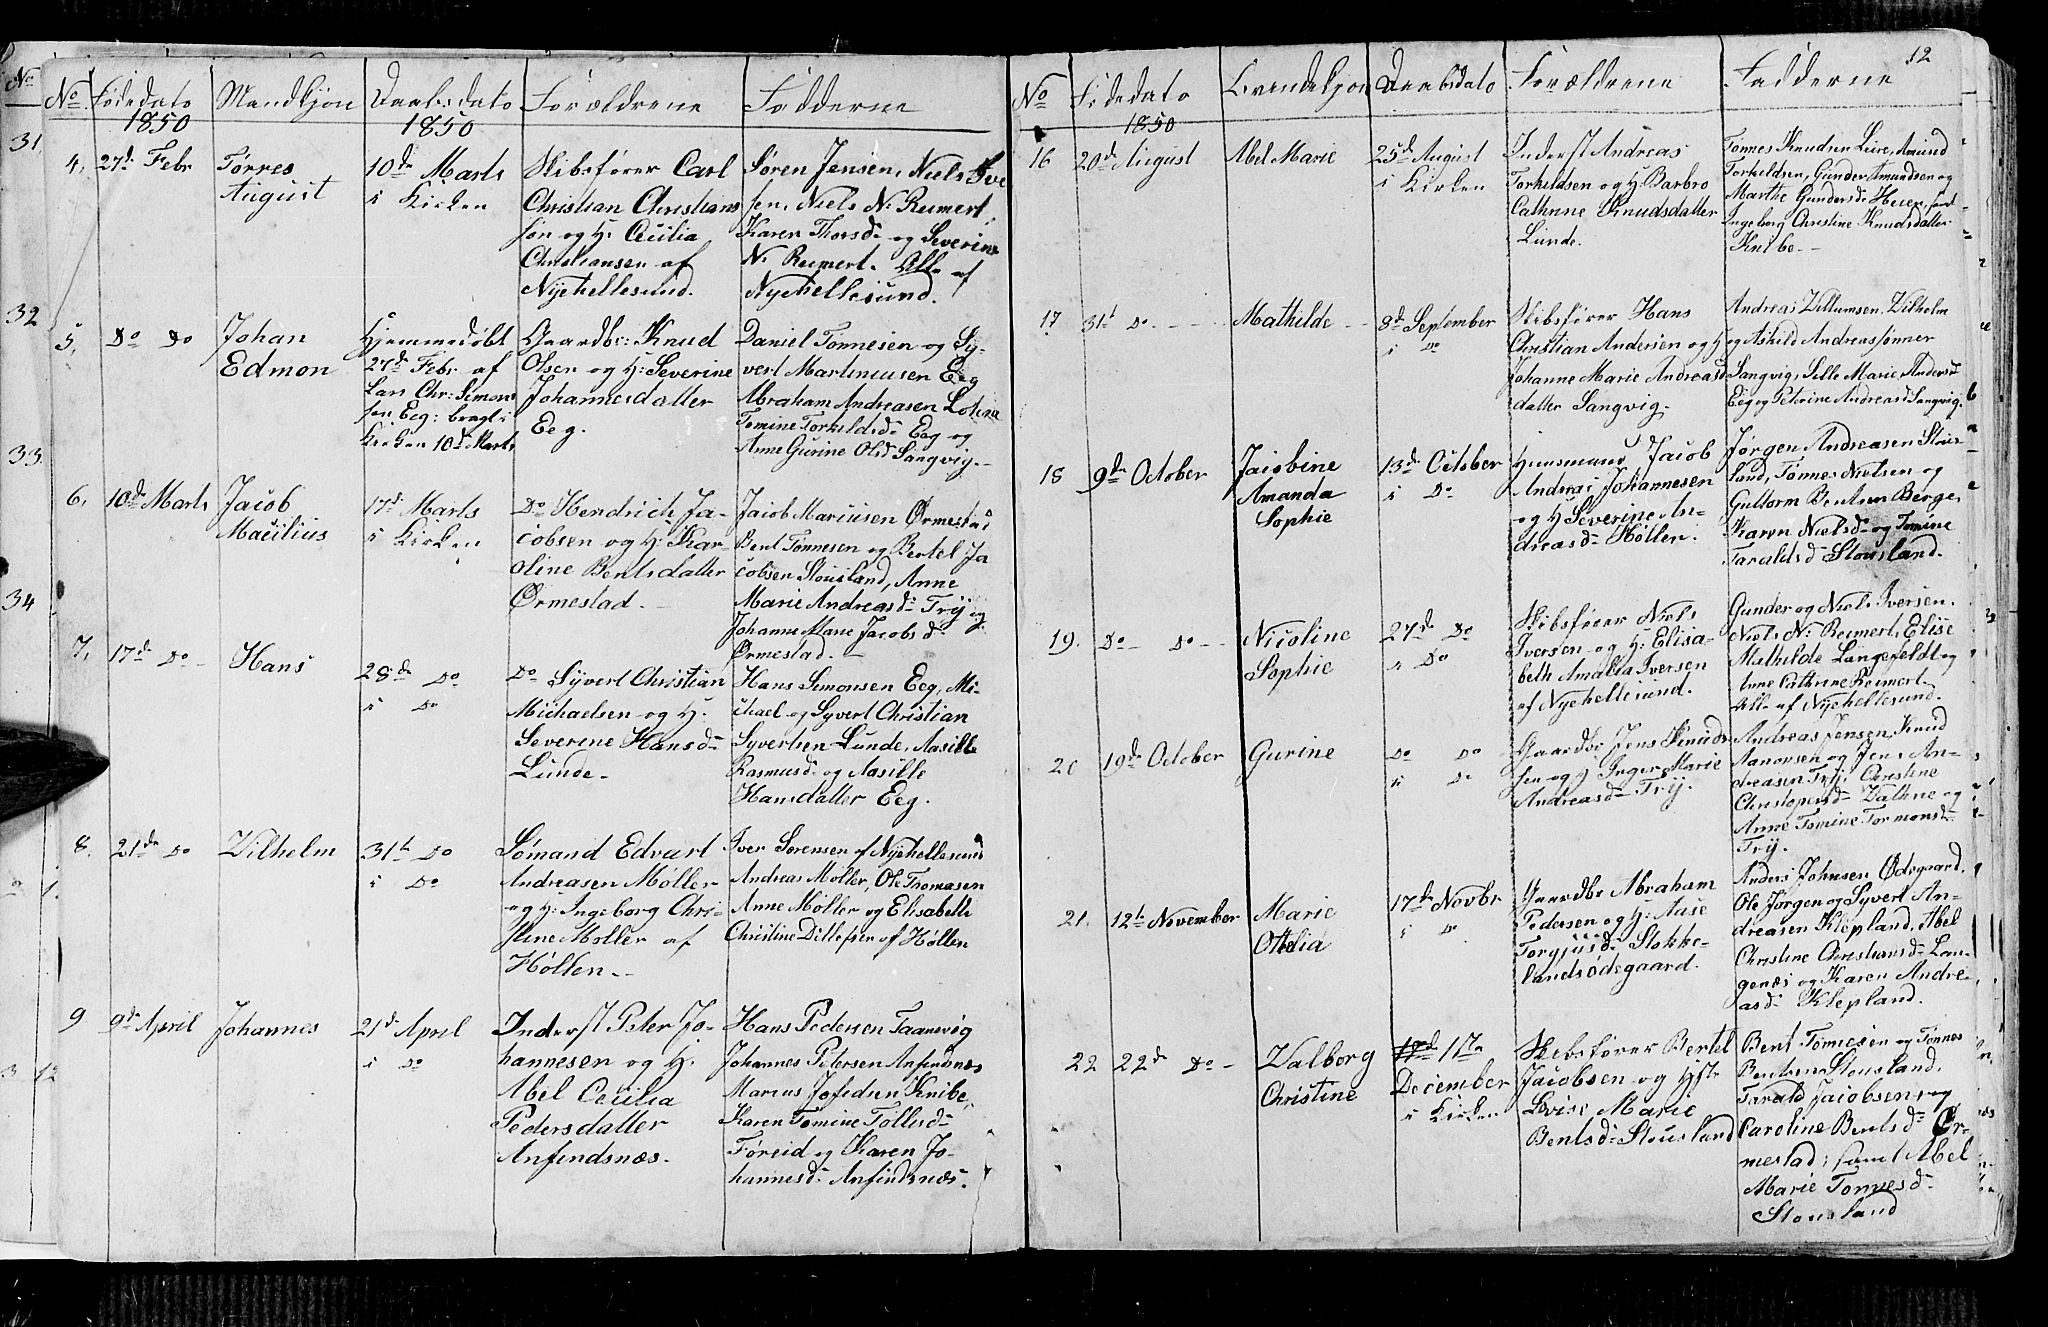 No Fødedato Mandkjøn Daabsdato Forældrene Fadderne
1850 1850
4, 27de Febr
Tørres
August
10de Marts
i Kirken
Skibsfører Carl
Christian Christians
sen og H. Cecilia
Christiansen af
Nyehellesund.
Søren Jensen, Niels Ive
sen, Niels N. Reimert,
Karen Thorsd. og Severine
N. Reimert. Alle af
Nyehellesund.
5, Do Do
Johan
Edmon
Hjemmedøbt
27de Febr af
Lars Chr: Simons
sen Eeg: bragt i
Kirken 10de Marts
Gaardbr: Knud
Olsen og H: Severine
Johannesdatter
Eeg.
Daniel Tønnesen og Sy-
vert Martinusen Eeg
Abraham Andreasen
Tomine Torkildsd. Eeg og
Anne Gurine Olsd Sangvig.
6, 10de Marts
Jacob
17de Marts
i Kirken
Do Hendrich Ja-
cobsen og H: Kar-
oline Bentsdatter
Ørmestad.
Jacob Mariusen Ørmestad
Bent Tønnesen og Bertel Ja
cobsen Stousland, Anne
Marie Andreasd. Try og
Johanne Marie Jacobsd.
Ørmestad.
7, 17de Do
Hans
28de Do
i Do
Do Syvert Christian
Michaelsen og H.
Severine Hansd.
Lunde.
Hans Simonsen Eeg, Mi-
chael og Syvert Christian
Syvertsen Lunde, Aasille
Rasmusd. og Aasille
Hansdatter Eeg.
8. 21de Do
Vilhelm
31te Do
i Do
Sømand Edvart
Andreasen Møller
og H: Ingeborg Chri-
stine Møller af
Høllen.
Iver Sørensen af Nyehellesund
Andreas Møller, Ole Thomasen
Anne Møller og Elisabeth
Christine Ditlefsen af Høllen
9 9de April
Johannes
21de April
i Do
Inderst Peter Jo-
hannesen og H.
Abel Cecilia
Pedersdatter
Anfindsnæs.
Hans Pedersen Taanevig
Johannes Petersen Anfindsnæs
Marcus Josefsen Knibe,
Karen Tomine Tollisd.
Føreid og Karen Jo-
hannesd. Anfindsnæs.
31
32
33
34
12
No Fødedato Qvindekjøn Daabsdato Forældrene Fadderne
1850
16 20de August
Abel Marie
25de August
i Kirken
Inderst Andreas
Torkildsen og H. Barbro
Cathrine Knudsdatter
Lunde.
Tønnes Knudsen Leire, Amund
Torkildsen, Gunder Amundsen og
Marthe Gundersd. Heien, samt
Ingeborg Christine Knudsdatter
Knibe.
17 31te Do
Mathilde
8de September
i Do
Skibsfører Hans
Christian Andersen og H
Johanne Marie Andreas
datter Sangvig.
Andreas Villumsen, Vilhelm
og Askild Andreassønner
Sangvig, Sille Marie Andersd
Eeg og Petrine Andreasd Sangvig.
18 9de October
Jacobine
Amanda
Sophie
13de October
i Do
Huusmand Jacob
Andreas Johannesen
og H Severine An-
dreasd. Høllen.
Jørgen Andreasen Stous
land, Tønnes Nielsen og
Guttorm Bentsen Berge,
Karen Nielsd. og Tomine
Taraldsd Stousland.
19. Do Do
Nicoline
Sophie
27de Do
i Do
Skibsfører Niels
Iversen og H: Elisa-
beth Amalia Iversen
af Nyehellesund.
Gunder og Niels Iversen.
Niels N. Reimert, Elise
Mathilde Langefeldt og
Anne Cathrine Reimert
Alle af Nyehellesund.
20 19de October
Gurine
Do Do
i Do
Gaardbr Jens Knuds
sen og H Inger Marie
Andreasd. Try.
Andreas Jensen, Knud
Aanonsen og Jens An-
dreasen Try, Christine
Christophersd. Valhne og
Anne Tomine Tormonsd.
Try.
21. 12te November
Marie
Othelia
17de Novbr
i Do
Gaardbr Abraham
Pedersen og H: Aase
Torgjusd. Stokke-
landsødegaard.
Anders Johnsen Ødegaard,
Ole Jørgen og Syvert An-
dreasen Klepland, Abel
Christine Christiansd. Lan-
genæs og Karen Andre-
asd. Klepland.
22 22de Do
Valborg
Christine
December
i Kirken
Skibsfører Bertel
Jacobsen og Hstr
Lovise Marie
Bentsd. Stousland
Bent Tønnesen og Tønnes
Bentsen Stousland,
Tarald Jacobsen og
Caroline Bentsd. Ør-
mestad, samt Abel
Marie Tønnesd.
Stousland